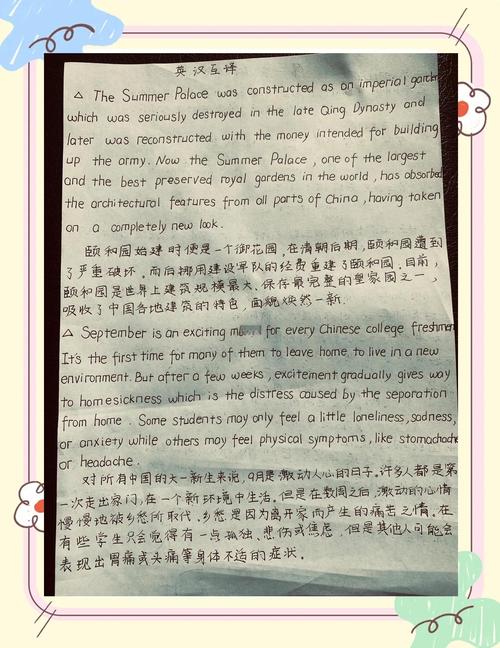 英汉互译
△ The Summer Palace was constructed as an imperial garden
which was seriously destroyed in the late Qing Dynasty and
later was reconstructed with the money intended for building
up the army. Now the Summer Palace, one of the largest
and the best preserved royal gardens in the world, has absorbed
the architectural features from all parts of China, having taken
on a completely new look.
颐和园始建时便是一个御花园,在清朝后期,颐和园遭到
了严重破坏。而后挪用建设军队的经费重建了颐和园。目前,
颐和园是世界上建筑规模最大、保存最完整的皇家园之一,
吸收了中国各地建筑的特色,面貌焕然一新.
△ September is an exciting for every Chinese college freshmen
It's the first time for many of them to leave home, to live in a new
environment. But after a few weeks, excitement gradually gives way
to homesickness which is the distress caused by the seporation
from home. Some students may only feel a little loneliness, sadness,
or anxiety while others may feel physical symptoms, like stomachache
or headache.
对所有中国的大一新生来说,9月是激动人心的日子。许多人都是第
一次走出家门,在一个新环境中生活。但是在数周之后,激动的心情
慢慢地被乡愁所取代。乡愁是因为离开家而产生的痛苦之情,在
有些学生只会觉得有一点孤独、悲伤或焦急,但是其他人可能会
表现出胃痛或头痛等身体不适的症状。